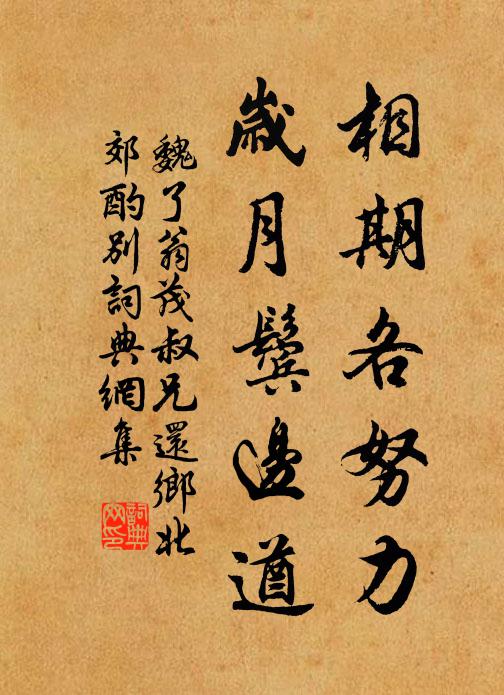 相期各努力
歲月鬓邊遒
魏了翁茂叔兄還鄉北
郊酌别詞典網集
詞典网印